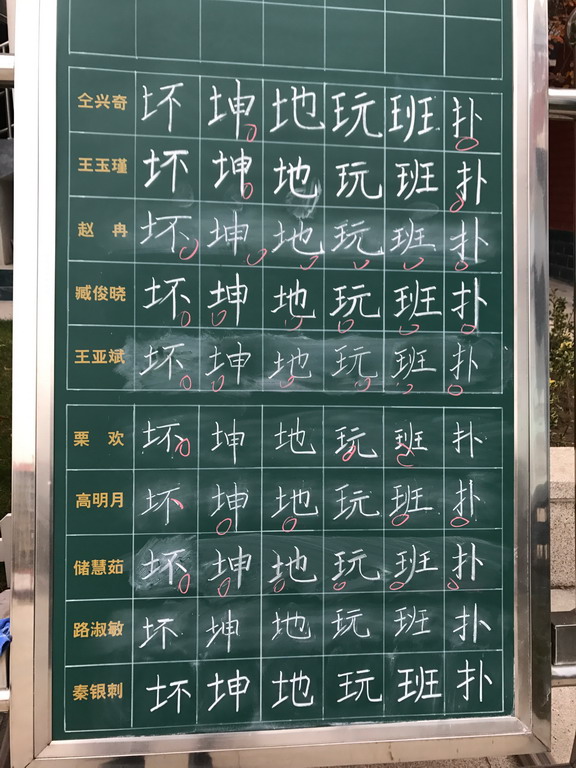 仝兴奇 坏 坤 地 玩 班 扑
王玉瑾 坏 坤 地 玩 班 扑
赵冉 坏 坤 地 玩 班 扑
臧俊晓 坏 坤 地 玩 班 扑
王亚斌 坏 坤 地 玩 班 扑
栗欢 坏 坤 地 玩 班 扑
高明月 坏 坤 地 玩 班 扑
储慧茹 坏 坤 地 玩 班 扑
路淑敏 坏 坤 地 玩 班 扑
秦银刺 坏 坤 地 玩 班 扑